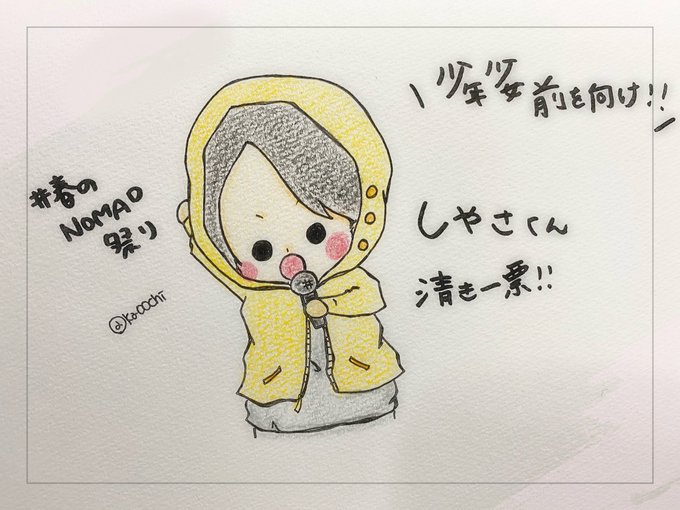 \ 少年少女前を向け!! /
#春の
NOMAD
祭り
しやさくん
清き一票!!
@ko.oochi